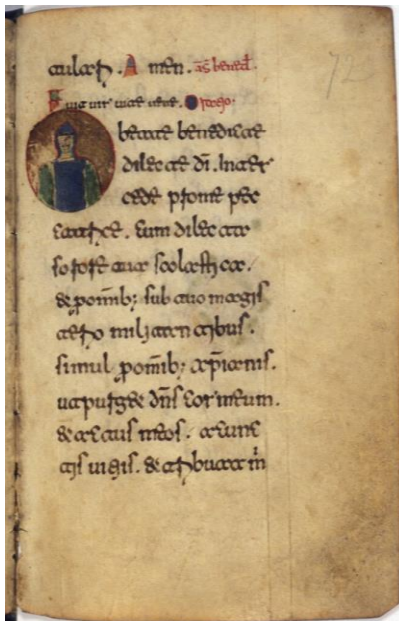 culorum. Amen. añ benedī.
Fuit vir vite vene. Oratio.
O beate benedicte
dilecte dī. Inter
cede pro me pec
catore. Cum dilecta
sorore tua scolastica.
& pro omīb; sub tuo magis
terio militantibus.
simul & pro omīb; xp̄ianis.
ut purget dn̄s cor meum.
& actus meos. a cunc
tis vitiis. & tribuat m̄
72